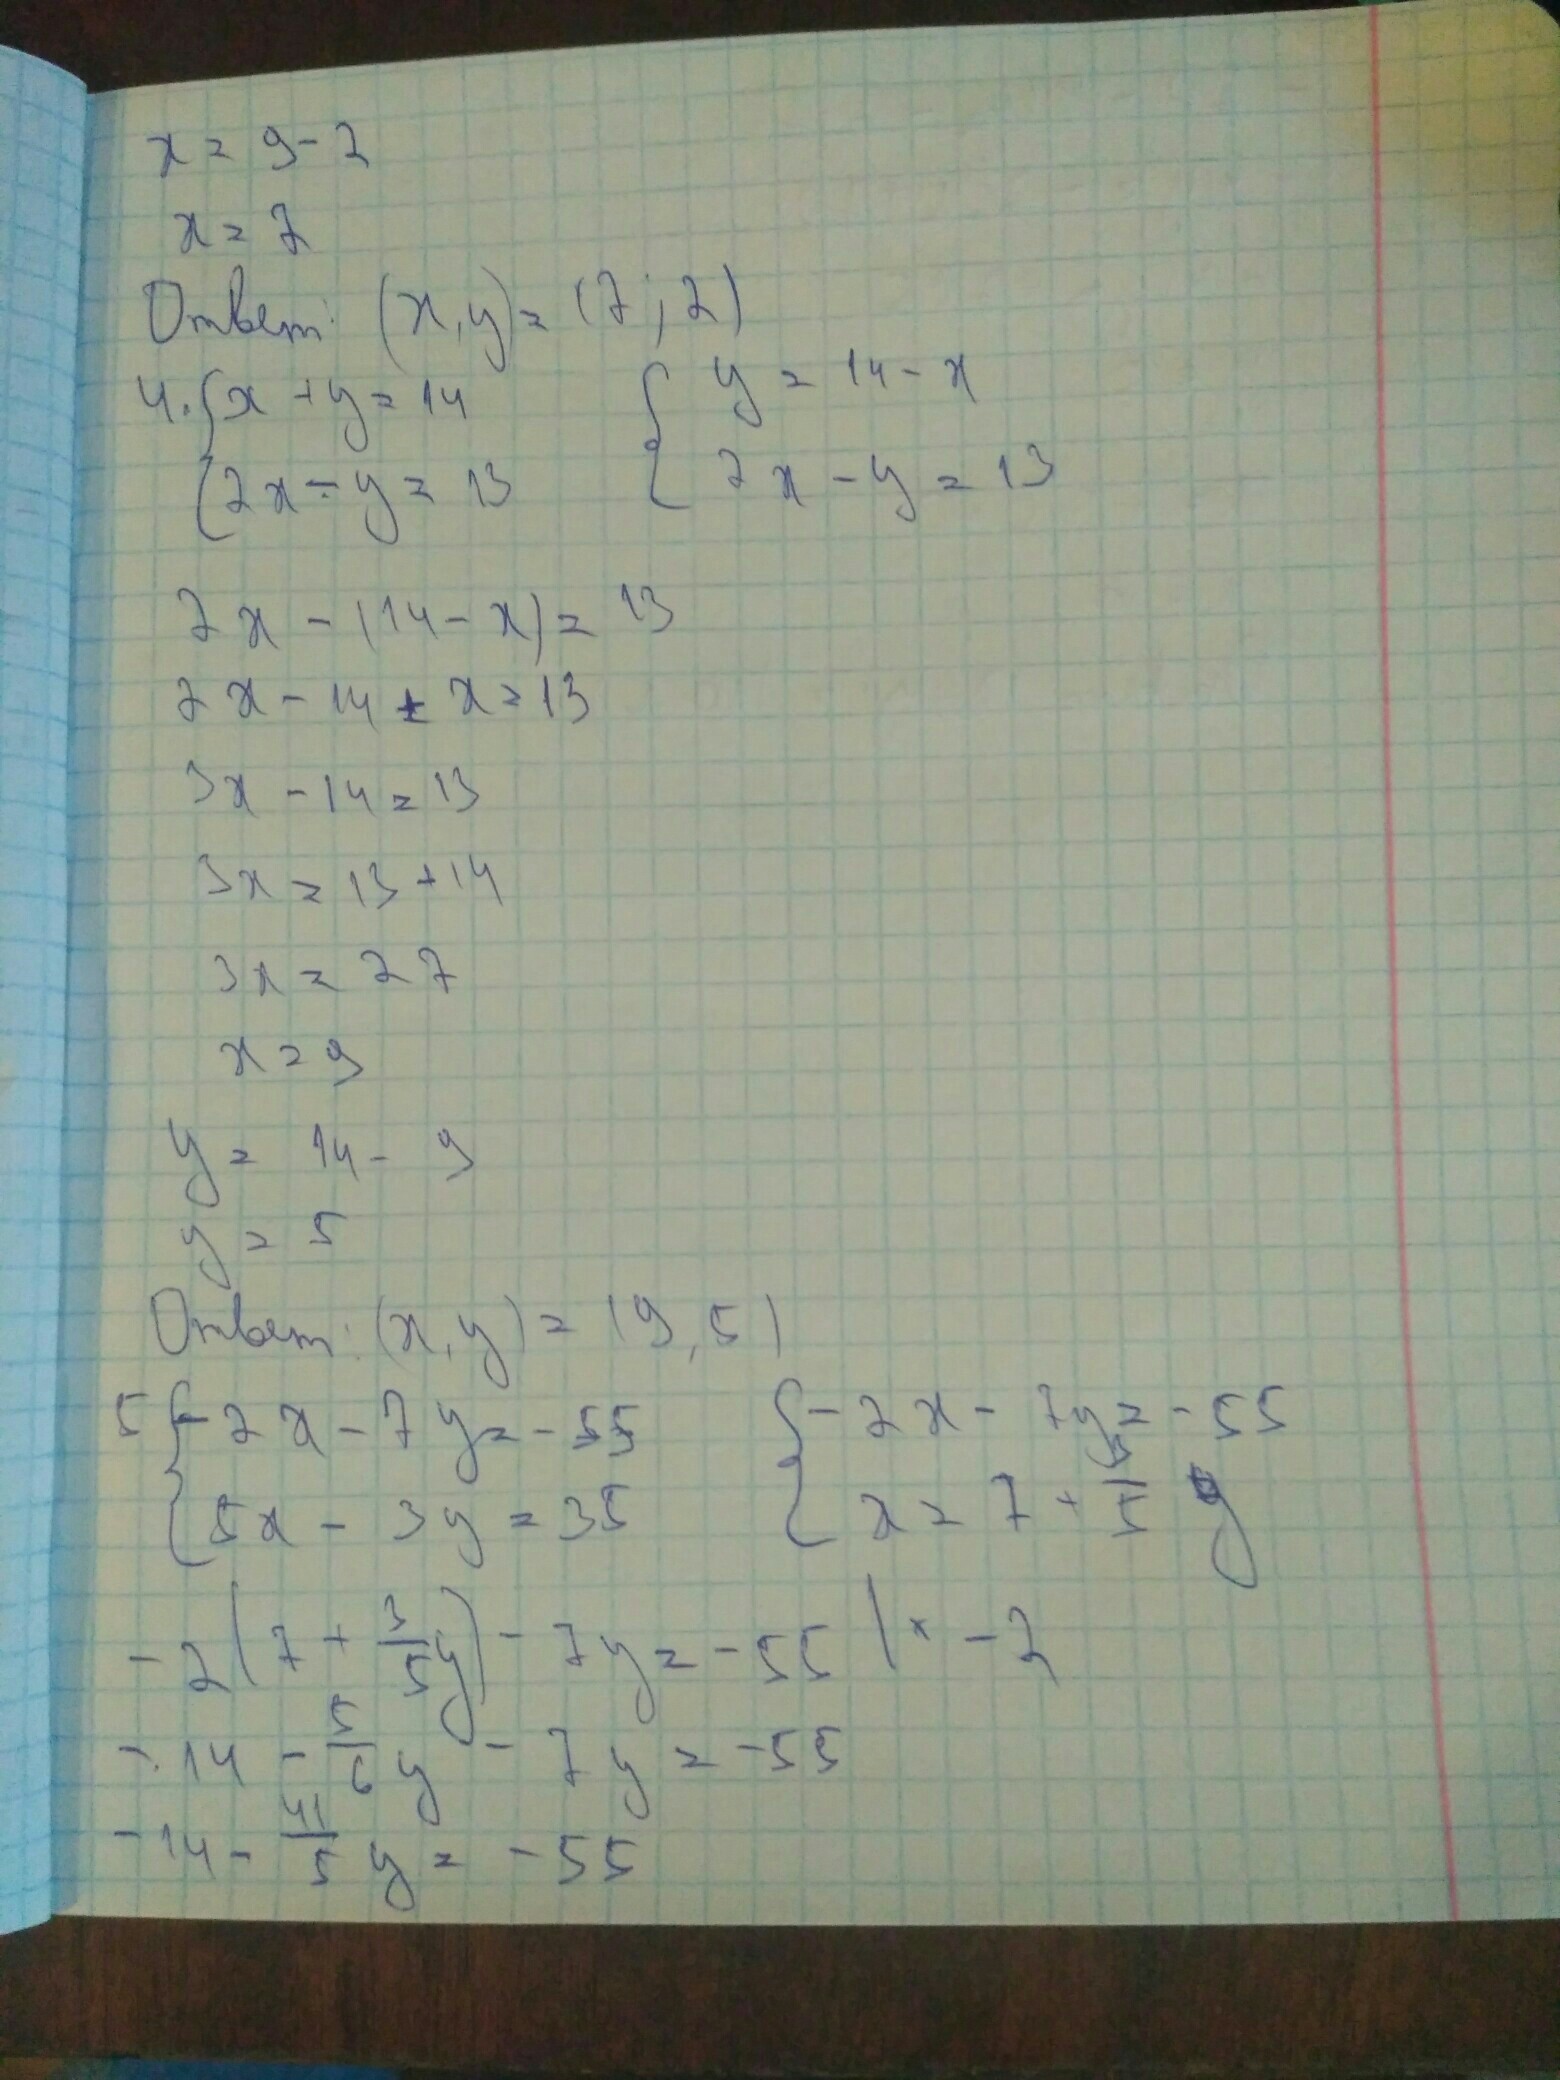 x = 9 - 2
x = 7
Ответ: (x, y) = (7; 2)
4. { x + y = 14 { y = 14 - x
{ 2x - y = 13 { 2x - y = 13
2x - (14 - x) = 13
2x - 14 + x = 13
3x - 14 = 13
3x = 13 + 14
3x = 27
x = 9
y = 14 - 9
y = 5
Ответ: (x, y) = (9, 5)
5 { -2x - 7y = -55 { -2x - 7y = -55
{ 5x - 3y = 35 { x = 7 + 3/5 y
-2(7 + 3/5 y) - 7y = -55 | × -2
-14 - 5/6 y - 7y = -55
-14 - 41/5 y = -55